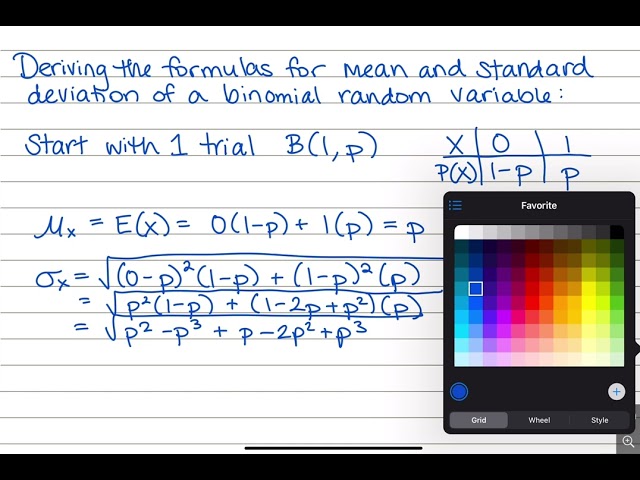 Deriving the formulas for mean and standard
deviation of a binomial random variable:
Start with 1 trial B(1,p)
X | 0 | 1
P(X) | 1-p | p
μₓ = E(X) = 0(1-p) + 1(p) = p
σₓ = √(0-p)²(1-p) + (1-p)²(p)
= √p²(1-p) + (1-2p+p²)(p)
= √p²-p³ + p-2p²+p³
Favorite
Grid Wheel Style